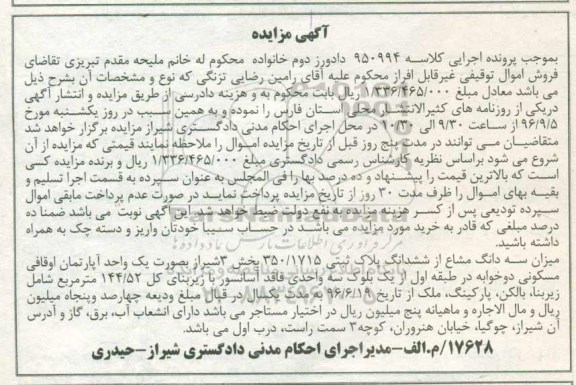 آگهی مزایده
بموجب پرونده اجرایی کلاسه ۹۵۰۹۹۴ دادورز دوم خانواده محکوم له خانم ملیحه مقدم تبریزی تقاضای
فروش اموال توقیفی غیرقابل افراز محکوم علیه آقای رامین رضایی تزنگی که نوع و مشخصات آن بشرح ذیل
می باشد معادل مبلغ ۱/۳۳۶/۴۶۵/۰۰۰ ریال بابت محکوم به و هزینه دادرسی از طریق مزایده و انتشار آگهی
دریکی از روزنامه های کثیرالانتشار محلی استان فارس را نموده و به همین سبب در روز یکشنبه مورخ
۹۶/۹/۵ از ساعت ۹/۳۰ الی ۱۰/۳۰ در محل اجرای احکام مدنی دادگستری شیراز مزایده برگزار خواهد شد
متقاضیان می توانند در مدت پنج روز قبل از تاریخ مزایده اموال را ملاحظه نمایند قیمتی که مزایده از آن
شروع می شود براساس نظریه کارشناس رسمی دادگستری مبلغ ۱/۳۳۶/۴۶۵/۰۰۰ ریال و برنده مزایده کسی
است که بالاترین قیمت را پیشنهاد و ده درصد بها را فی المجلس به عنوان سپرده به قسمت اجرا تسلیم و
بقیه بهای اموال را ظرف مدت ۳۰ روز از تاریخ مزایده پرداخت نماید در صورت عدم پرداخت مابقی اموال
سپرده تودیعی پس از کسر هزینه مزایده به نفع دولت ضبط خواهد شد. آگهی نوبت می باشد ضمنا ده
درصد مبلغی که قادر به خرید مورد مزایده می باشد در حساب سیبا خودتان واریز و دسته چک به همراه
داشته باشید.
میزان سه دانگ مشاع از ششدانگ پلاک ثبتی ۳۵۰/۱۷۱۵ بخش ۳شیراز بصورت یک واحد آپارتمان اوقافی
مسکونی دوخوابه در طبقه اول از یک بلوک سه واحدی فاقد آسانسور با زیربنای کل ۱۴۴/۵۲ مترمربع شامل
زیربنا، بالکن، پارکینگ، ملک از تاریخ ۹۶/۶/۱۹ به مدت یکسال در قبال مبلغ ودیعه چهارصد وپنجاه میلیون
ریال و مال الاجاره و ماهیانه پنج میلیون ریال در اختیار مستاجر می باشد دارای انشعاب آب، برق، گاز و آدرس
آن شیراز، چوگیا، خیابان هنروران، کوچه۳ سمت راست، درب اول می باشد.
۱۷۶۲۸/م.الف-مدیراجرای احکام مدنی دادگستری شیراز-حیدری